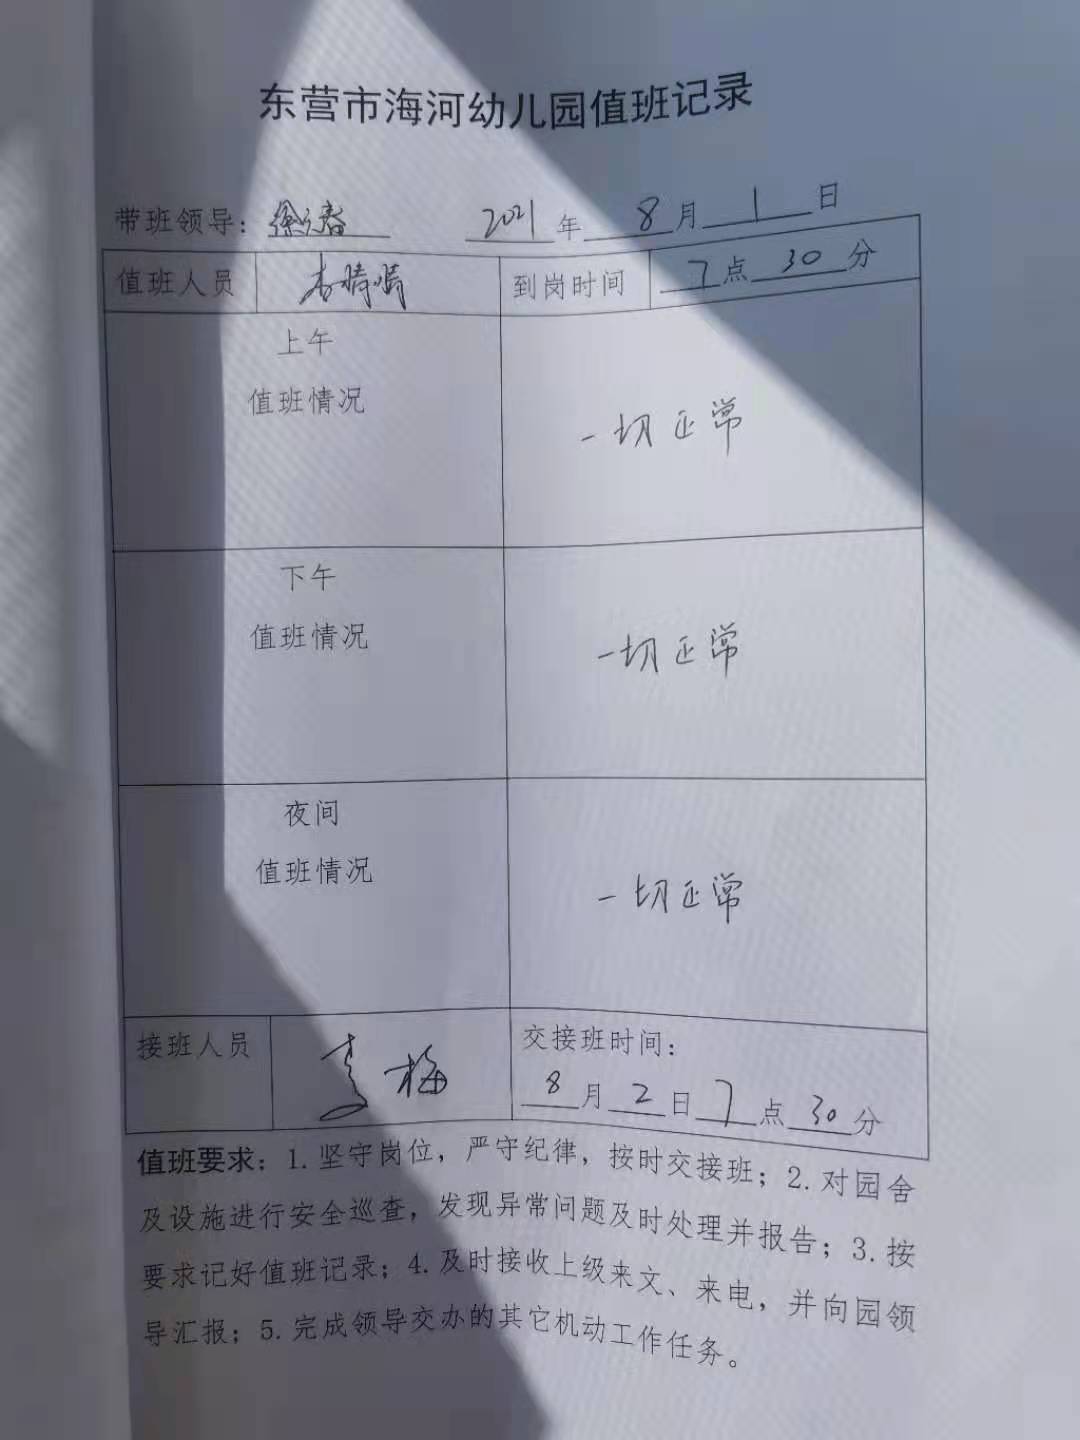 东营市海河幼儿园值班记录
带班领导: 2021年8月1日
值班人员 李晴晴 到岗时间 7点30分
上午
值班情况
一切正常
下午
值班情况
一切正常
夜间
值班情况
一切正常
接班人员 交接班时间:
8月2日7点30分
值班要求: 1. 坚守岗位, 严守纪律, 按时交接班; 2. 对园舍
及设施进行安全巡查, 发现异常问题及时处理并报告; 3. 按
要求记好值班记录; 4. 及时接收上级来文、来电, 并向园领
导汇报; 5. 完成领导交办的其它机动工作任务。